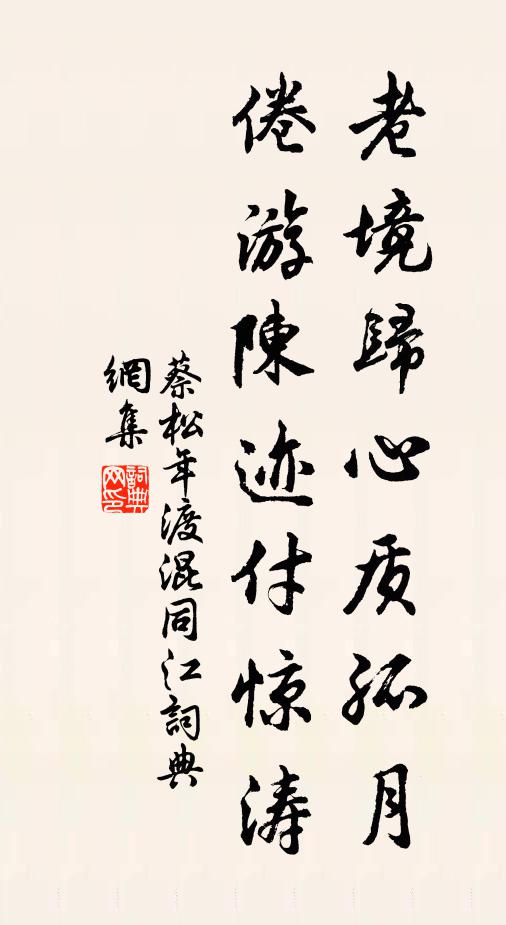 老境歸心质孤月
倦游陳迹付惊涛
蔡松年渡混同江詞典
網集
詞典
网印